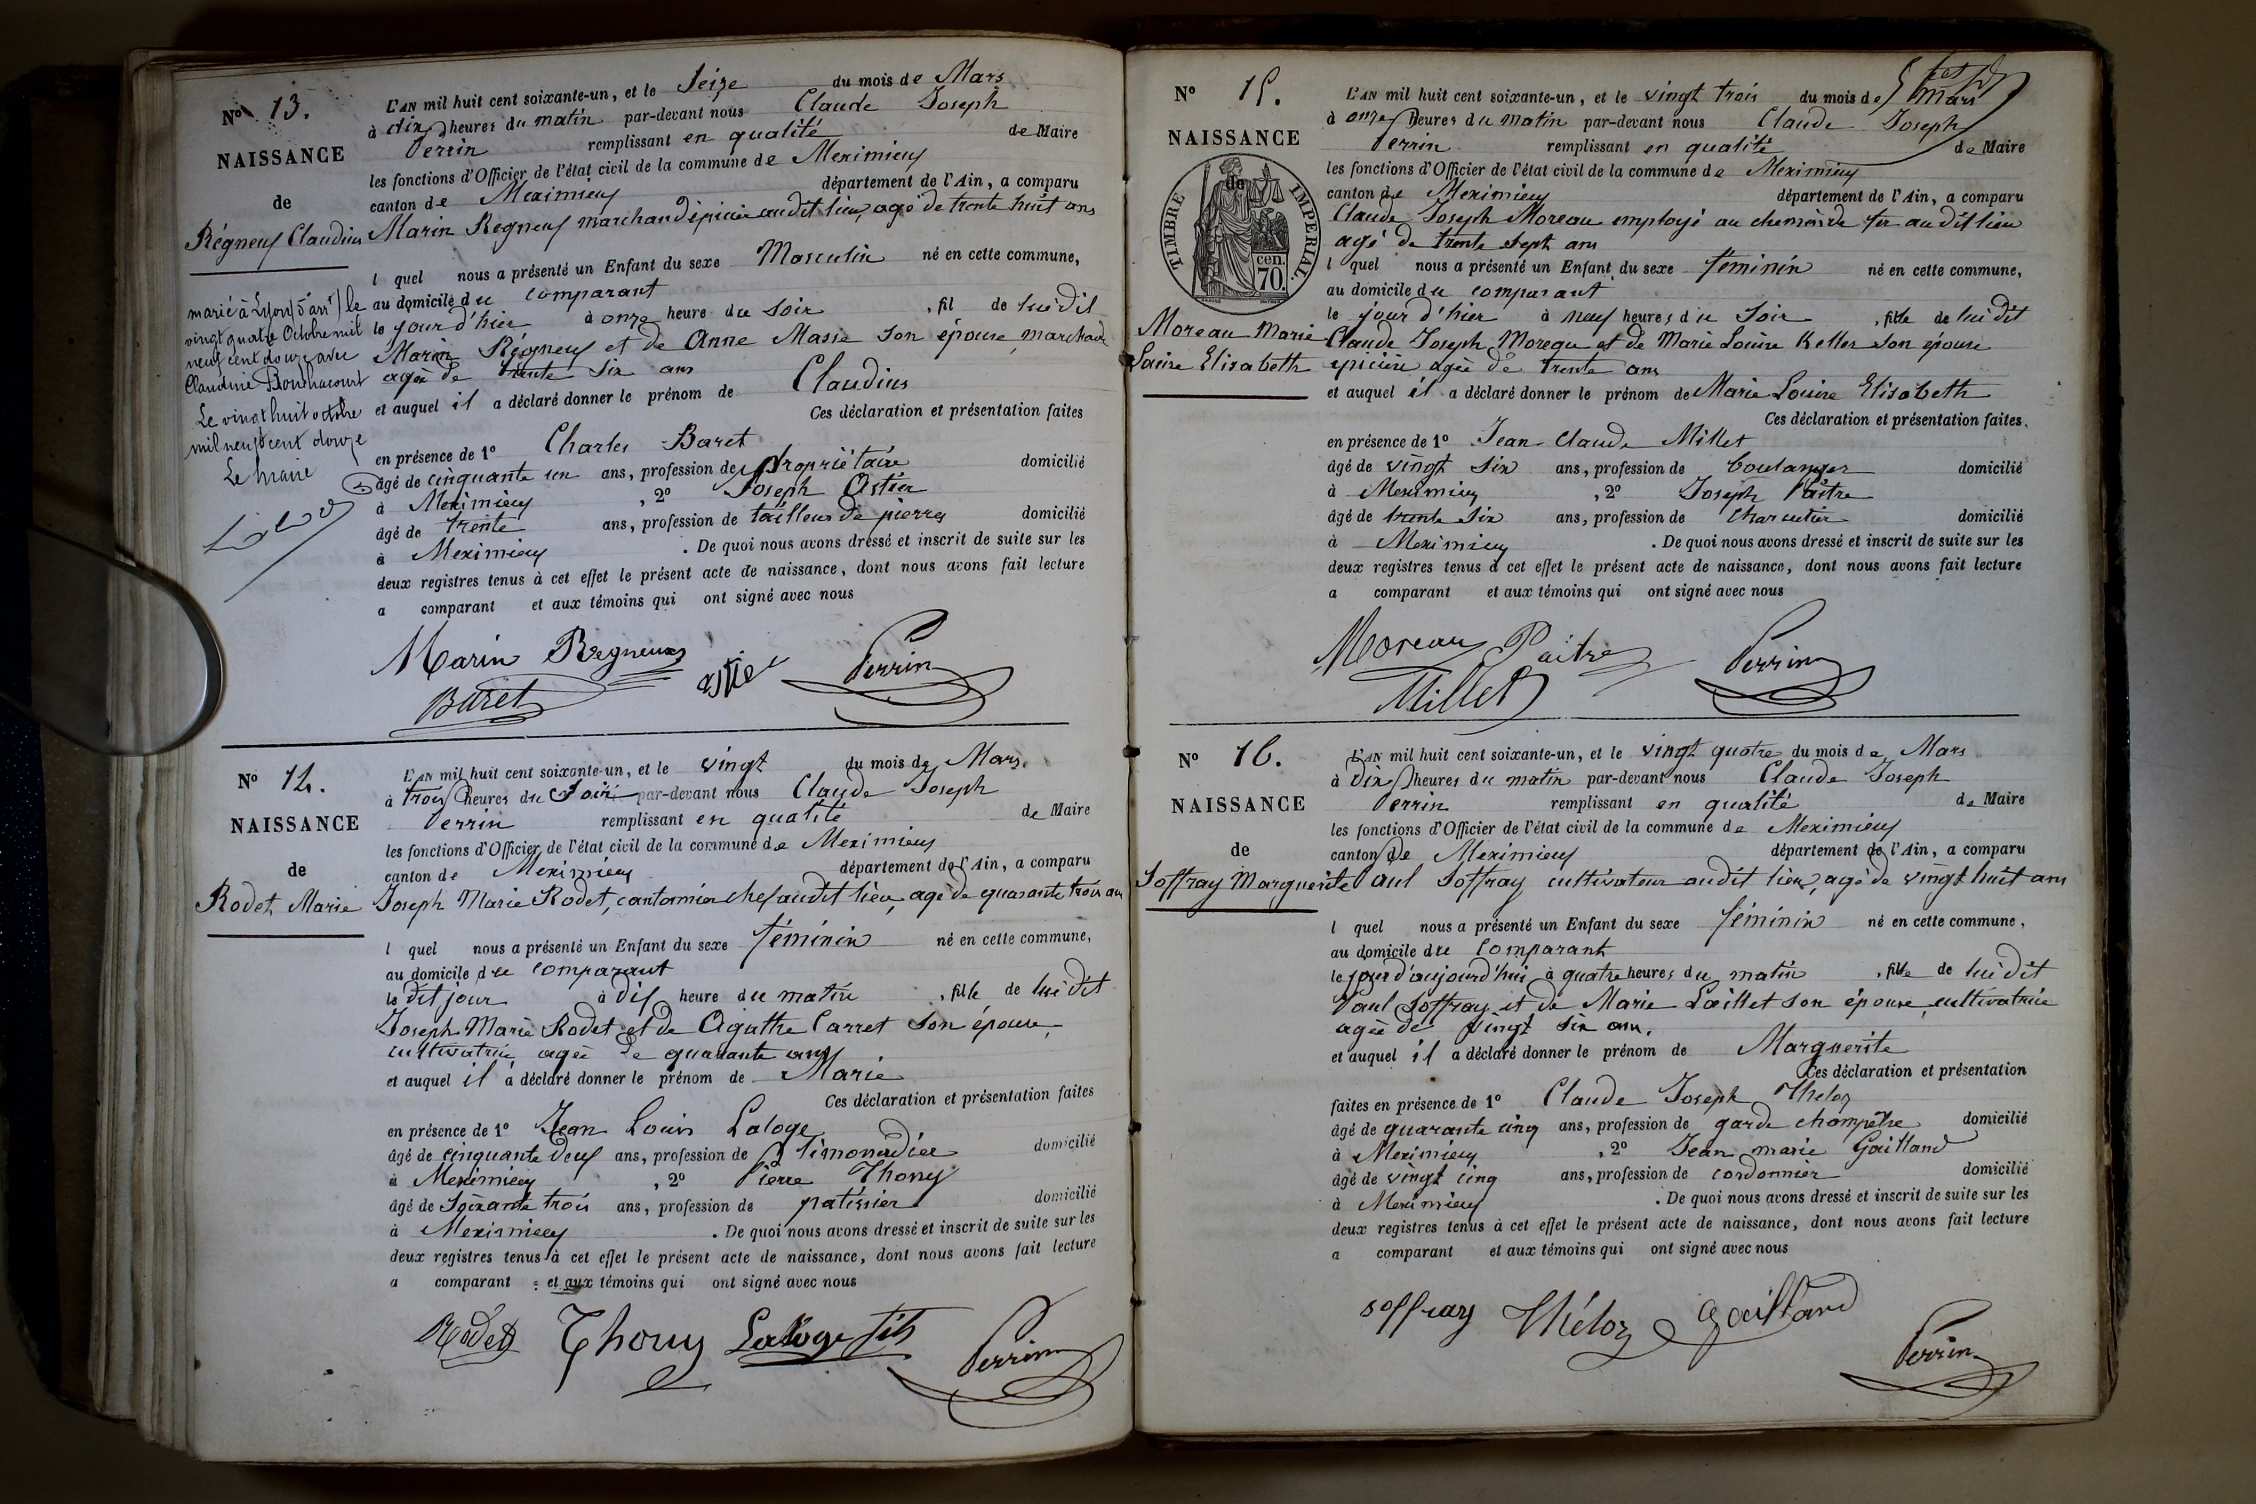 N° 13.
NAISSANCE
de
Régneux Claudius
marié à Lyon (5e arrt) le
vingt quatre Octobre mil
neuf cent douze avec
Claudine
Le vingt huit octobre
mil neuf cent douze
Le Maire
L'AN mil huit cent soixante-un, et le Seize du mois de Mars
à dix heures du matin par-devant nous Claude Joseph
Perrin remplissant en qualité de Maire
les fonctions d'Officier de l'état civil de la commune de Meximieux
canton de Meximieux département de l'Ain, a comparu
Marin Regneux marchand épicier audit lieu, agé de trente huit ans
l quel nous a présenté un Enfant du sexe Masculin né en cette commune,
au domicile du comparant
le jour d'hier à onze heure du soir , fil de lui dit
Marin Régneux et de Anne Masse son épouse, marchande
agée de trente six ans
et auquel il a déclaré donner le prénom de Claudius
Ces déclaration et présentation faites
en présence de 1° Charles Baret
âgé de cinquante un ans, profession de propriétaire domicilié
à Meximieux , 2° Joseph Astier
âgé de trente ans, profession de tailleur de pierres domicilié
à Meximieux . De quoi nous avons dressé et inscrit de suite sur les
deux registres tenus à cet effet le présent acte de naissance, dont nous avons fait lecture
a comparant et aux témoins qui ont signé avec nous
Marin Regneux astier Perrin
Baret
N° 14.
NAISSANCE
de
Rodet Marie
L'AN mil huit cent soixante-un, et le vingt du mois de Mars
à trois heures du Soir par-devant nous Claude Joseph
Perrin remplissant en qualité de Maire
les fonctions d'Officier de l'état civil de la commune de Meximieux
canton de Meximieux département de l'Ain, a comparu
Joseph Marie Rodet, cantonnier chef audit lieu, agé de quarante trois ans
l quel nous a présenté un Enfant du sexe féminin né en cette commune,
au domicile du comparant
le dit jour à dix heure du matin , fille de lui dit
Joseph Marie Rodet et de Agathe Carret son épouse,
cultivatrice agée de quarante ans
et auquel il a déclaré donner le prénom de Marie
Ces déclaration et présentation faites
en présence de 1° Jean Louis Laloge
âgé de cinquante deux ans, profession de limonadier domicilié
à Meximieux , 2° Pierre Thony
âgé de Soixante trois ans, profession de patissier domicilié
à Meximieux . De quoi nous avons dressé et inscrit de suite sur les
deux registres tenus à cet effet le présent acte de naissance, dont nous avons fait lecture
a comparant et aux témoins qui ont signé avec nous
Rodet Thony Laloge fils Perrin
N° 15.
NAISSANCE
de
TIMBRE IMPERIAL.
cen.
70.
Moreau Marie
Louise Elisabeth
L'AN mil huit cent soixante-un, et le vingt trois du mois de Mars
à onze heures du matin par-devant nous Claude Joseph
Perrin remplissant en qualité de Maire
les fonctions d'Officier de l'état civil de la commune de Meximieux
canton de Meximieux département de l'Ain, a comparu
Claude Joseph Moreau employé au chemin de fer au dit lieu
agé de trente sept ans
l quel nous a présenté un Enfant du sexe féminin né en cette commune,
au domicile du comparant
le jour d'hier à neuf heures du Soir , fille de lui dit
Claude Joseph Moreau et de Marie Louise Keller son épouse
epicière agée de trente ans
et auquel il a déclaré donner le prénom de Marie Louise Elisabeth
Ces déclaration et présentation faites,
en présence de 1° Jean Claude Millet
âgé de vingt six ans, profession de boulanger domicilié
à Meximieux , 2° Joseph Paître
âgé de trente six ans, profession de charcutier domicilié
à Meximieux . De quoi nous avons dressé et inscrit de suite sur les
deux registres tenus à cet effet le présent acte de naissance, dont nous avons fait lecture
a comparant et aux témoins qui ont signé avec nous
Moreau Paitre Perrin
Millet
N° 16.
NAISSANCE
de
Soffray Marguerite
L'AN mil huit cent soixante-un, et le vingt quatre du mois de Mars
à dix heures du matin par-devant nous Claude Joseph
Perrin remplissant en qualité de Maire
les fonctions d'Officier de l'état civil de la commune de Meximieux
canton de Meximieux département de l'Ain, a comparu
Paul Soffray cultivateur audit lieu, agé de vingt huit ans
l quel nous a présenté un Enfant du sexe féminin né en cette commune,
au domicile du comparant
le jour d'aujourd'hui à quatre heures du matin , fille de lui dit
Paul Soffray et de Marie Laillet son épouse, cultivatrice
agée de vingt six ans.
et auquel il a déclaré donner le prénom de Marguerite
Ces déclaration et présentation
faites en présence de 1° Claude Joseph Théloz
âgé de quarante cinq ans, profession de garde champêtre domicilié
à Meximieux , 2° Jean marie Gaillard
âgé de vingt cinq ans, profession de cordonnier domicilié
à Meximieux . De quoi nous avons dressé et inscrit de suite sur les
deux registres tenus à cet effet le présent acte de naissance, dont nous avons fait lecture
a comparant et aux témoins qui ont signé avec nous
Soffray Théloz Gaillard
Perrin